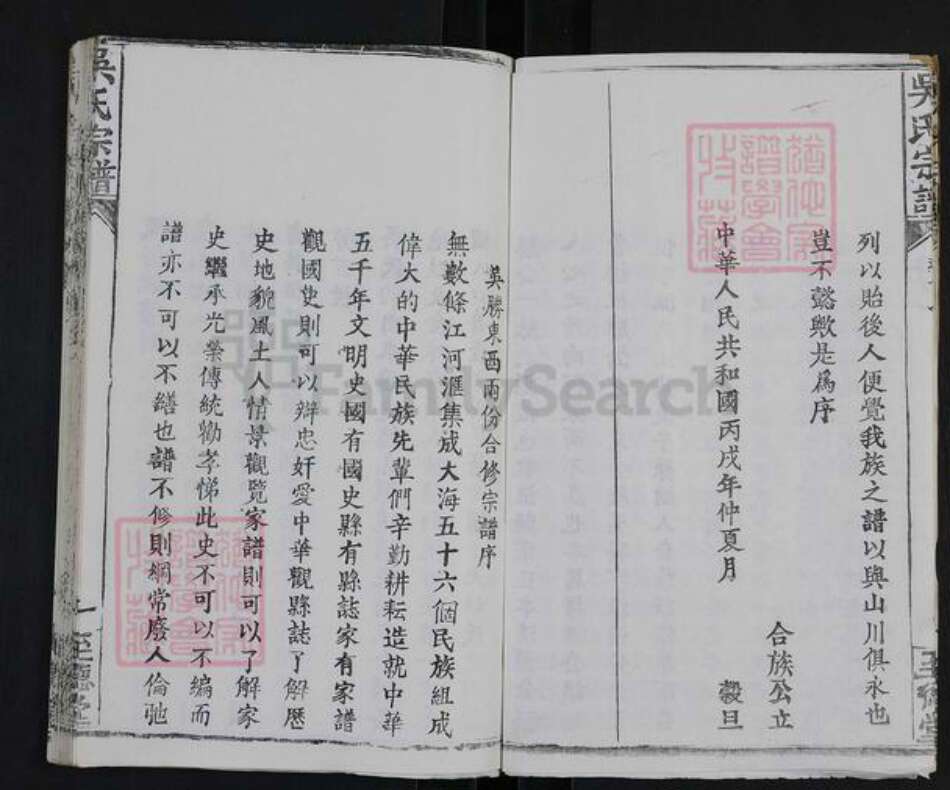 吳氏宗譜
列以貽後人便覺我族之譜以與山川俱永也
豈不懿歟是爲序
中華人民共和國丙戌年仲夏月
合族公立
穀旦
吳勝東西兩份合修宗譜序
無數條江河滙集成大海五十六個民族組成
偉大的中華民族先輩們辛勤耕耘造就中華
五千年文明史國有國史縣有縣誌家有家譜
觀國史則可以辩忠奸愛中華觀縣誌了解歷
史地貌風土人情景觀覽家譜則可以了解家
史繼承光榮傳統勸孝悌此史不可以不編而
譜亦不可以不繕也譜不修則綱常廢人倫弛
吳氏宗譜
一
至德堂
FamilySearch